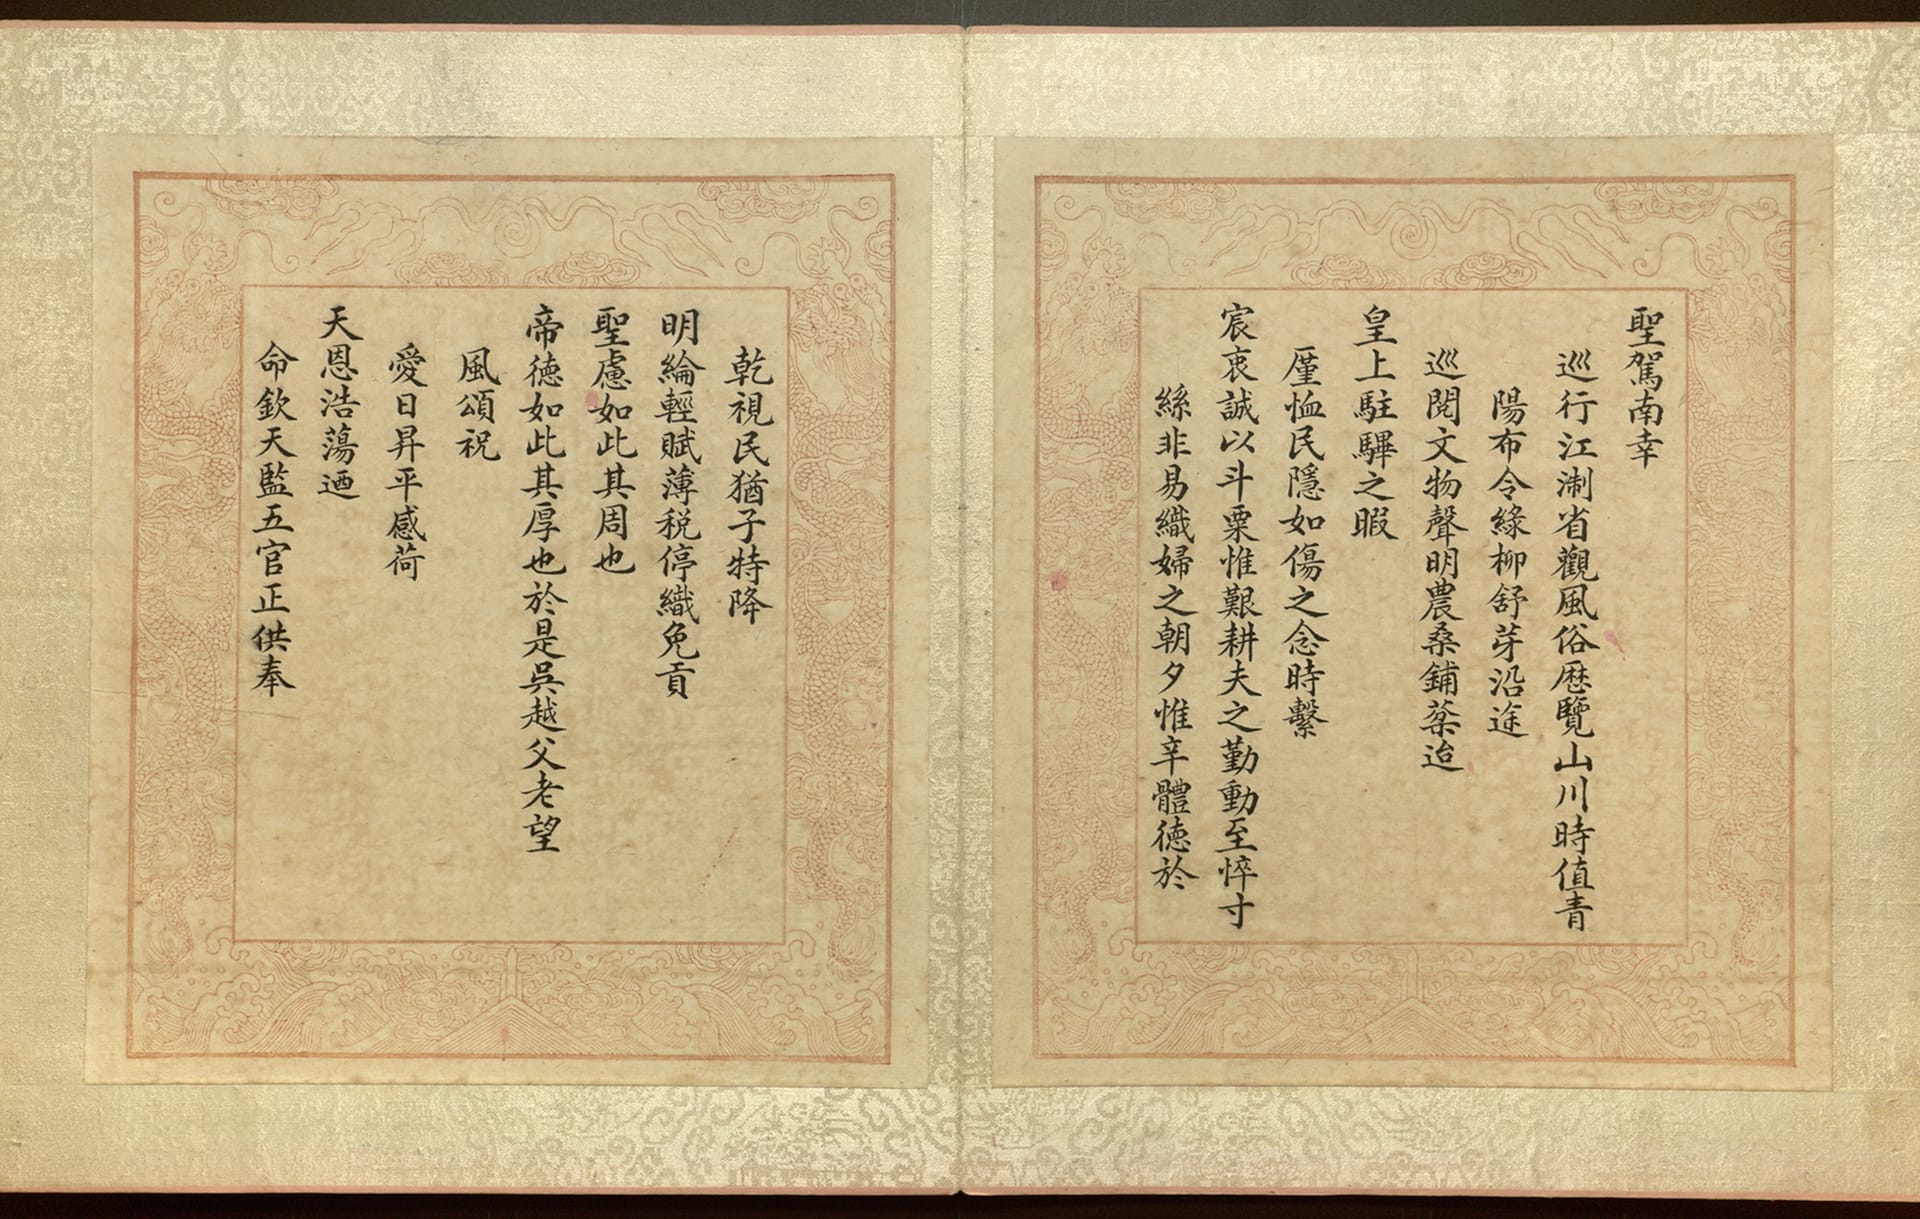 聖駕南幸
巡行江淛省觀風俗歷覽山川時值青
陽布令緑柳舒芽沿途
巡閱文物聲明農桑鋪菜迨
皇上駐驆之暇
厪恤民隱如傷之念時繫
宸衷誠以斗粟惟艱耕夫之勤動至悴寸
絲非易織婦之朝夕惟辛體德於
乾視民猶子特降
明綸輕賦薄稅停織免貢
聖慮如此其周也
帝德如此其厚也於是吳越父老望
風頌祝
愛日昇平感荷
天恩浩蕩迺
命欽天監五官正供奉